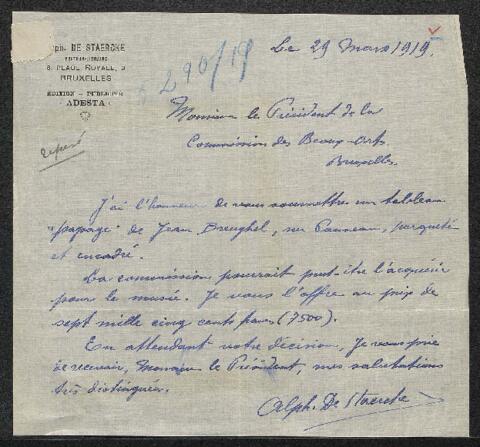 Alph. DE STAERCKE
8, PLACE ROYALE, 8
BRUXELLES
EDITION - PUBLICITÉ
ADESTA
290/19
Le 29 Mars 1919.
Monsieur le Président de la
Commission des Beaux-Arts.
Bruxelles.
J'ai l'honneur de vous soumettre un tableau
"paysage" de Jean Breughel, sur Panneau, parqueté
et encadré.
La commission pourrait peut-être l'acquérir
pour le musée. Je vous l'offre au prix de
sept mille cinq cents francs (7500).
En attendant votre décision, Je vous prie
de recevoir, Monsieur le Président, mes salutations
très distinguées.
Alph. De Staercke